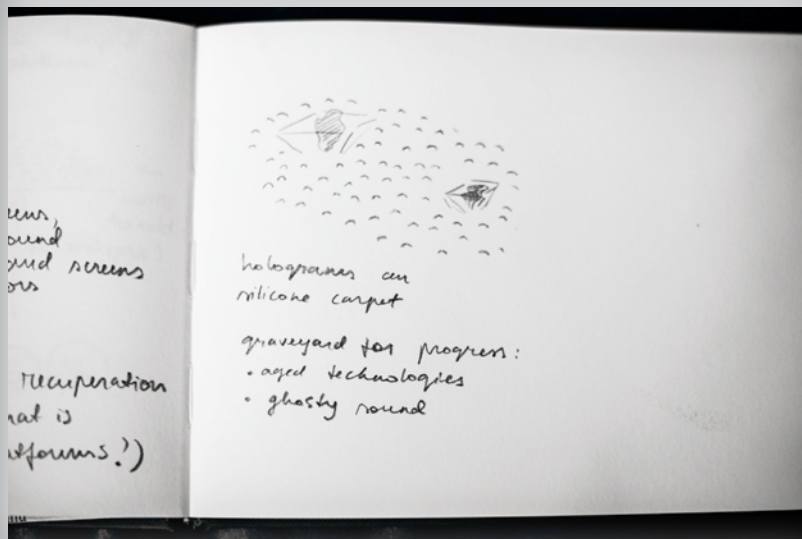 sound
and screens
recuperation
what is
platforms?)
holograms on
silicone carpet
graveyard for progress:
• aged technologies
• ghosty sound